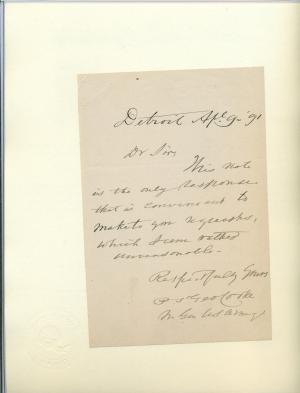 Detroit Apl. 9. '91
Dr Sir,
This note
is the only response
that is convenient to
make to your requests,
which seem rather
unreasonable.
Respectfully Yours
P. St Geo Cooke